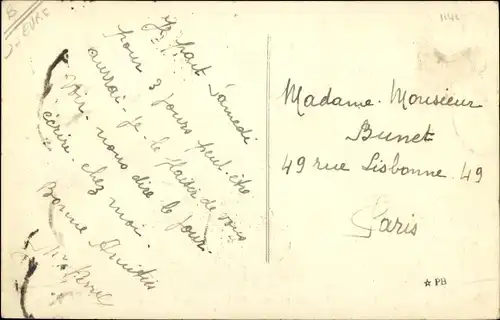 B
J-EURE
Je part Samedi
pour 3 jours peut être
aurrai je le plaisir de vous
voir. nous dire le jour.
écrire chez moi.
Bonne Amitiés
1142
Madame. Monsieur
Bunet
49 rue Lisbonne. 49
Paris
★ PB